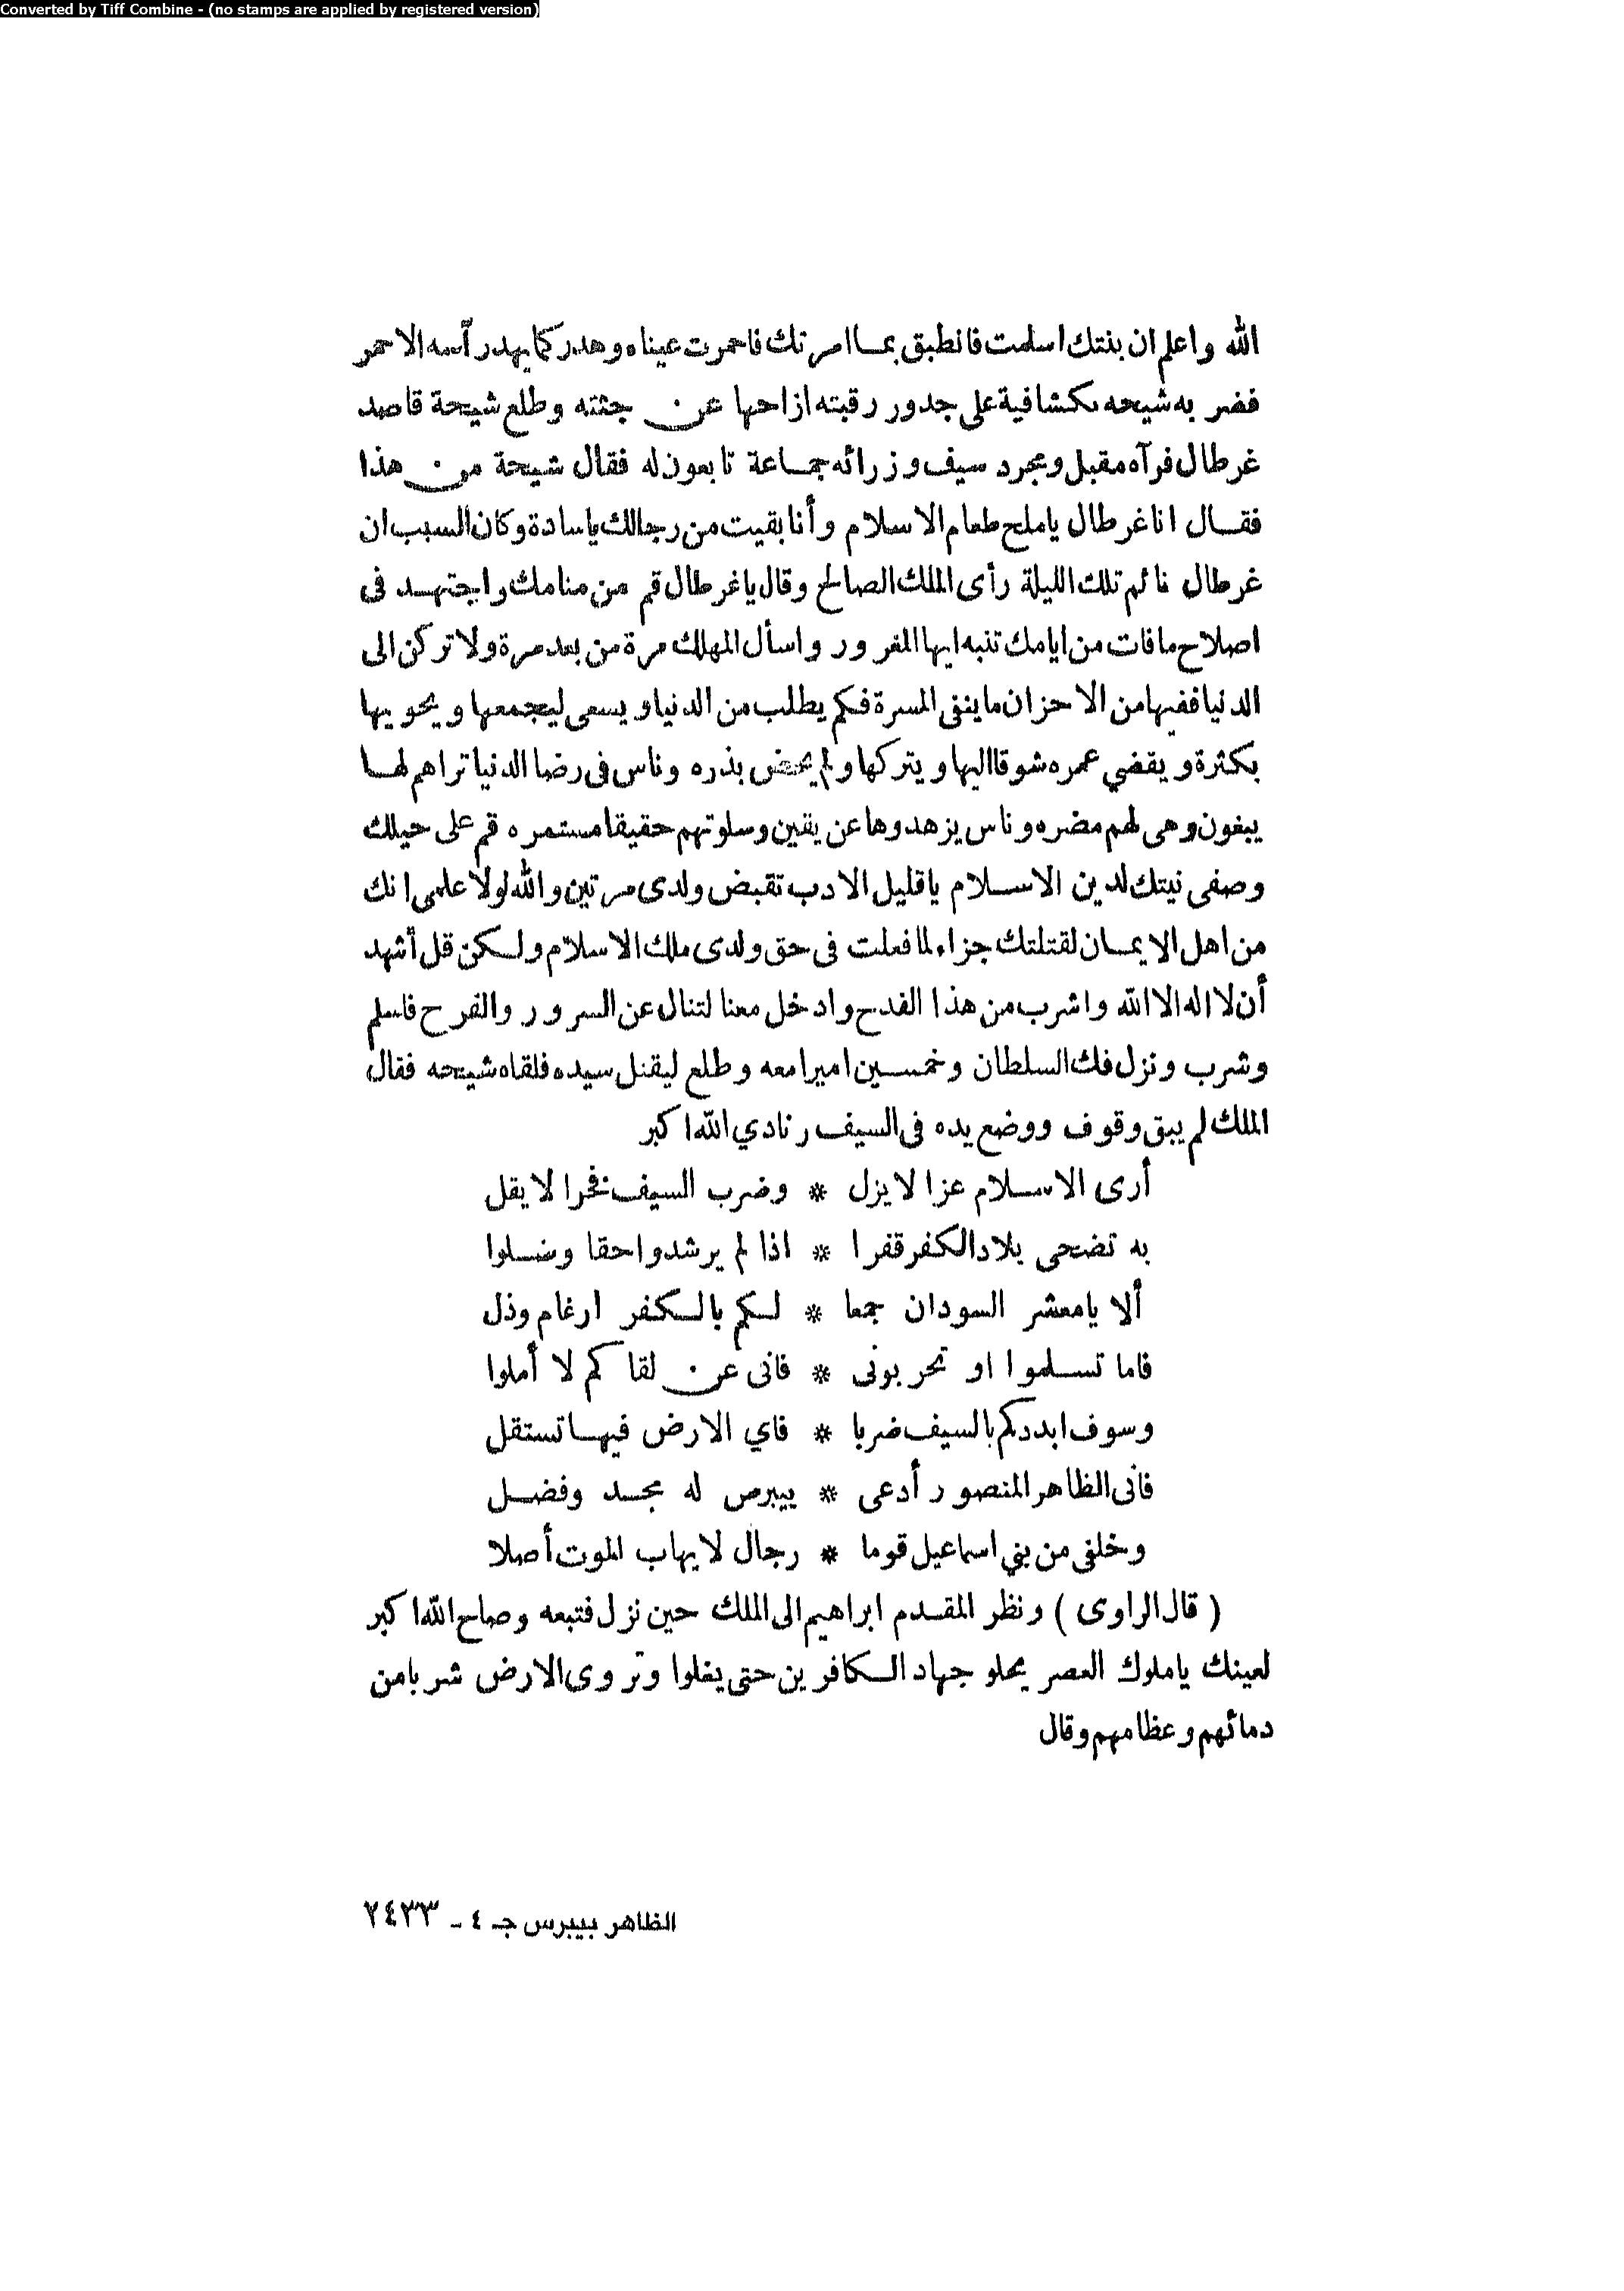 Converted by Tiff Combine - (no stamps are applied by registered version)
الله واعلم ان بنتك اسلمت فانطبق بما امرتك فاحمرت عيناه وهدر كما يهدر الاحمر
فضر به شيحه بكشافية على جدور رقبته ازاحها عن جثته وطلع شيحة قاصد
غرطال فرآه مقبل ومجرد سيف وزرائه جماعة تابعون له فقال شيحة من هذا
فقال انا غرطال يا ملح طعام الاسلام وأنا بقيت من رجالك ياسادة وكان السبب ان
غرطال نائم تلك الليلة رأى الملك الصالح وقال يا غرطال قم من منامك واجتهد فى
اصلاح ما فات من ايامك تنبه ايها المغرور واسأل المهلك مرة من بعد مرة ولا تركن الى
الدنيا ففيها من الاحزان ما ينفى المسرة فكم يطلب من الدنيا ويسعى ليجمعها ويحويها
بكثرة ويقضي عمره شوقا اليها ويتركها ولم يحض بذره وناس فى رضا الدنيا تراهم لها
يبغون وهى لهم مضره وناس يزهدوها عن يقين وسلوتهم حقيقا مستمره قم على حيلك
وصفى نيتك لدين الاسلام يا قليل الادب تقبض ولدى مرتين والله لولا علمى انك
من اهل الايمان لقتلتك جزاء لما فعلت فى حق ولدى ملك الاسلام ولكن قل أشهد
أن لا اله الا الله واشرب من هذا القدح وادخل معنا لتنال عن السرور والفرح فاسلم
وشرب ونزل فك السلطان وخمسين اميرا معه وطلع ليقتل سيده فلقاه شيحه فقال
الملك لم يبق وقوف ووضع يده فى السيف ونادي الله اكبر
أرى الاسلام عزا لا يزل * وضرب السيف فخرا لا يقل
به تضحى بلاد الكفر قفرا * اذا لم يرشدوا حقا وضلوا
ألا يا معشر السودان جمعا * لكم بالكفر ارغام وذل
فاما تسلموا او تحربونى * فانى عن لقاكم لا أملوا
وسوف ابددكم بالسيف ضربا * فاي الارض فيها تستقل
فانى الظاهر المنصور أدعى * بيبرص له مجد وفضل
وخلفى من بني اسماعيل قوما * رجال لا يهاب الموت أصلا
( قال الراوى ) ونظر المقدم ابراهيم الى الملك حين نزل فتبعه وصاح الله اكبر
لعينك يا ملوك العصر يحلو جهاد الكافرين حتى يفلوا وتروى الارض شربا من
دمائهم وعظامهم وقال
الظاهر بيبرس جـ ٤ - ٢٤٣٣